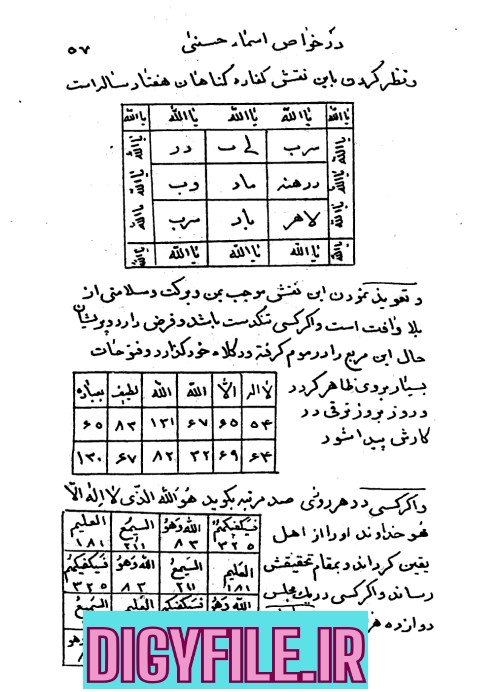 در خواص اسماء حسنی
۵۷
و نظر کردن باین نقش کفاره گناهان هفتاد ساله است
یاالله یاالله یاالله یاالله یاالله
سرب در
یاالله یاالله
درهنه ماد وب
یاالله یاالله
لاهر باد سرب
یاالله یاالله
یاالله یاالله یاالله یاالله یاالله
و تعویذ نمودن این نقش موجب یمن و برکت و سلامتی از
بلا و آفت است و اگر کسی تنگدست باشد و قرض دارد و پریشان
حال این مربع را در موم گرفته در کلاه خود گذارد و فتوحات
بسیار بروی ظاهر گردد
و روز بروز ترقی در
کارش پیدا شود
لااله الا الله الله لطیف بعباده
۵۴ ۶۵ ۶۷ ۱۳۱ ۸۳ ۶۵
۶۴ ۶۹ ۳۲ ۸۲ ۶۷ ۱۳۰
و اگر کسی در هر روزی صد مرتبه بگوید هُوَ اللهُ الَّذی لا اِلٰهَ اِلّا
هُو خداوند او را از اهل
یقین گرداند و بمقام تحقیقش
رساند و اگر کسی در یک مجلس
دوازده
فسیکفیکهم الله وهو السمیع العلیم
۳۲۵ ۸۳ ۲۱۱ ۱۸۱
العلیم السمیع الله وهو فسیکفیکهم
۱۸۱ ۲۱۱ ۸۳ ۳۲۵
الله وهو فسیکفیکهم العلیم السمیع
DIGYFILE.IR